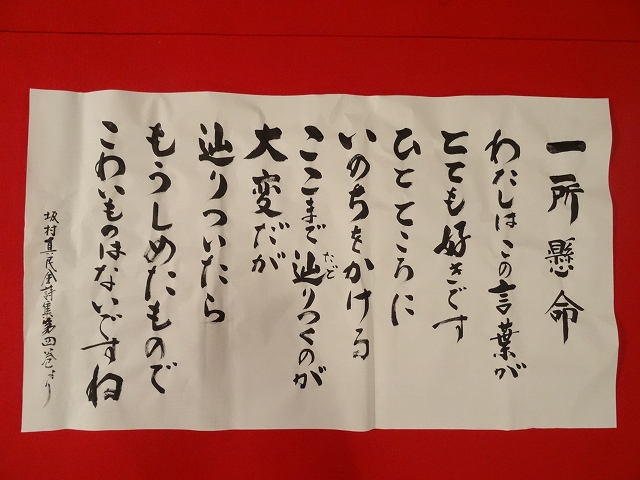 一所懸命
わたしはこの言葉が
とても好きです
ひとところに
いのちをかける
ここまで辿りつくのが
たど
大変だが
辿りついたら
もうしめたもので
こわいものはないですね
坂村真民全詩集第四巻より